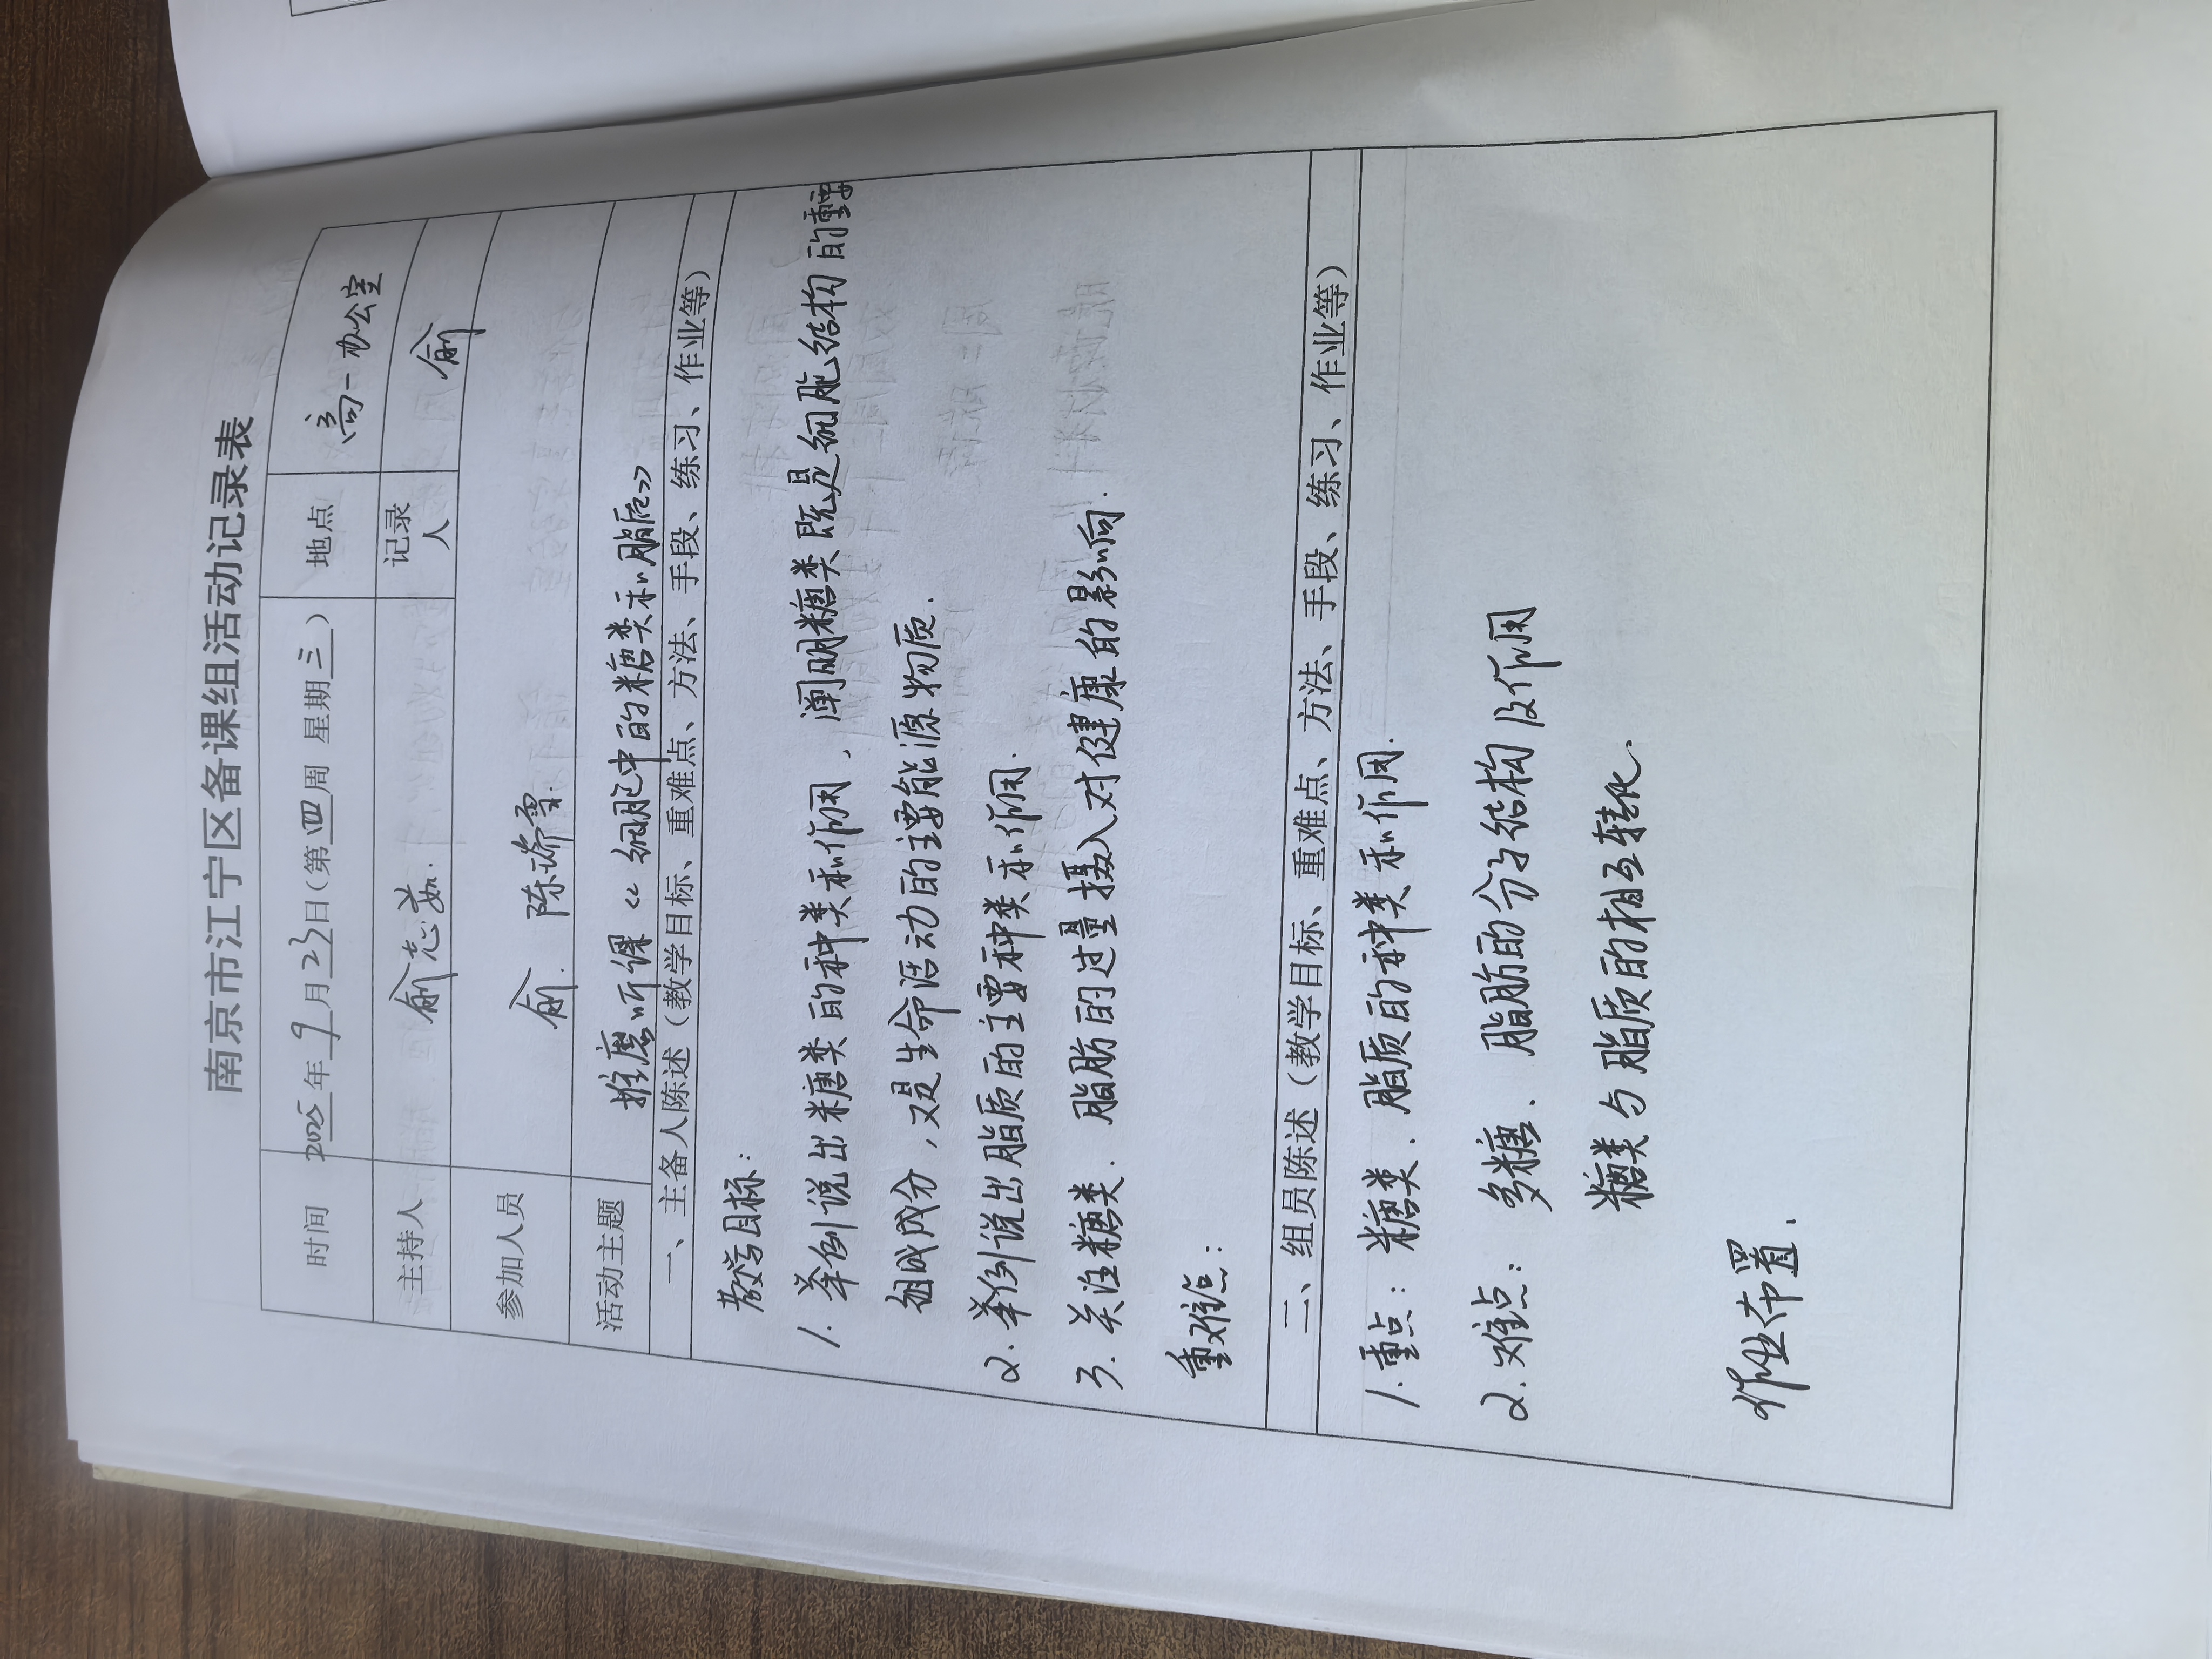 南京市江宁区备课组活动记录表
时间 2025年9月23日(第四周 星期三) 地点 高一办公室
主持人 俞志茹. 记录人 俞
参加人员 俞. 陈
活动主题 推磨听课《细胞中的糖类和脂质》
一、主备人陈述(教学目标、重难点、方法、手段、练习、作业等)
教学目标:
1. 举例说出糖类的种类和作用,阐明糖类既是细胞结构的重要
组成成分,又是生命活动的主要能源物质.
2. 举例说出脂质的主要种类和作用.
3. 关注糖类、脂肪的过量摄入对健康的影响.
重难点:
二、组员陈述(教学目标、重难点、方法、手段、练习、作业等)
1. 重点:糖类、脂质的种类和作用.
2. 难点:多糖、脂肪的分子结构及作用
糖类与脂质的相互转化.
作业布置.